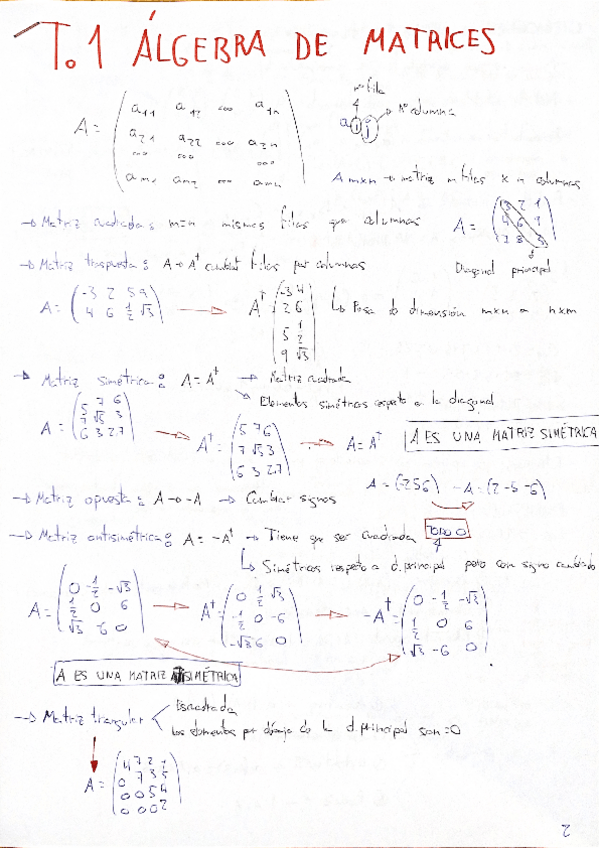 T.1 ÁLGEBRA DE MATRICES
nº fila
a11 a12 ... a1n
a i j → Nº columna
A =
a21 a22 ... a2n
... ... ...
am1 am2 ... amn
A mxn → matriz m filas x n columnas
→ Matriz cuadrada: m=n mismas filas que columnas A =
3 2 1
4 6 1
Diagonal principal
→ Matriz traspuesta: A → Aᵗ cambiar filas por columnas
A = (-3 2 5 9
4 6 1/2 √3)
→ Aᵗ = (-3 4
2 6
5 1/2
9 √3)
↳ Pasa de dimensión mxn a nxm
→ Matriz simétrica: A = Aᵗ → Matriz cuadrada
↘ Elementos simétricos respeto a la diagonal
A = (5 7 6
7 √5 3
6 3 2,7)
→ Aᵗ = (5 7 6
7 √5 3
6 3 2,7)
→ A = Aᵗ
A ES UNA MATRIZ SIMÉTRICA
→ Matriz opuesta: A → -A → Cambiar signos
A = (-2 5 6) -A = (2 -5 -6)
→ Matriz antisimétrica: A = -Aᵗ → Tiene que ser cuadrada TODO 0
↳ Simétricos respeto a d.principal pero con signo cambiado
A = (0 -1/2 -√3
1/2 0 6
√3 -6 0)
→ Aᵗ = (0 1/2 √3
-1/2 0 -6
-√3 6 0)
→ -Aᵗ = (0 -1/2 -√3
1/2 0 6
√3 -6 0)
A ES UNA MATRIZ ANTISIMÉTRICA
→ Matriz triangular < Es cuadrada
Los elementos por debajo de la d.principal son =0
A = (4 7 2 1
0 7 3 5
0 0 5 4
0 0 0 2)
2